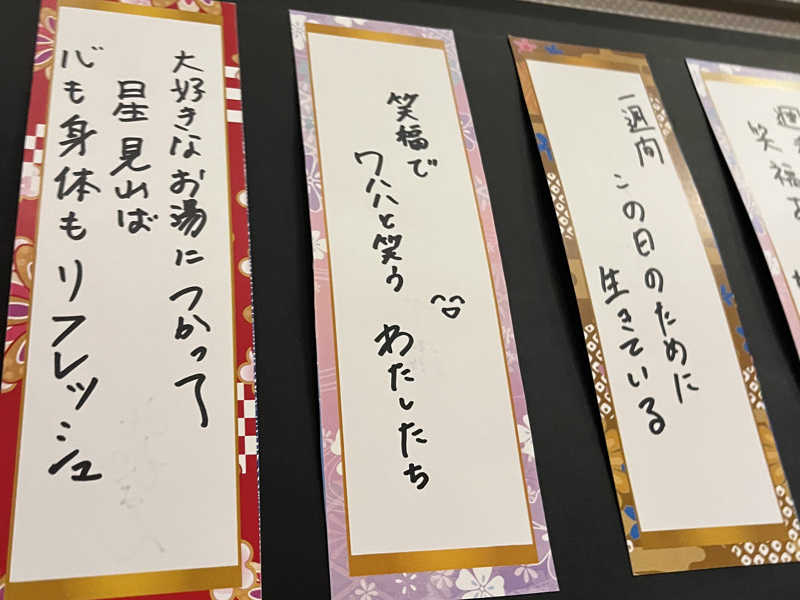 週
笑福
一週間 この日のために
生きている
笑福で
ワハハと笑う わたしたち
大好きなお湯につかって
星見山ば
心も身体もリフレッシュ